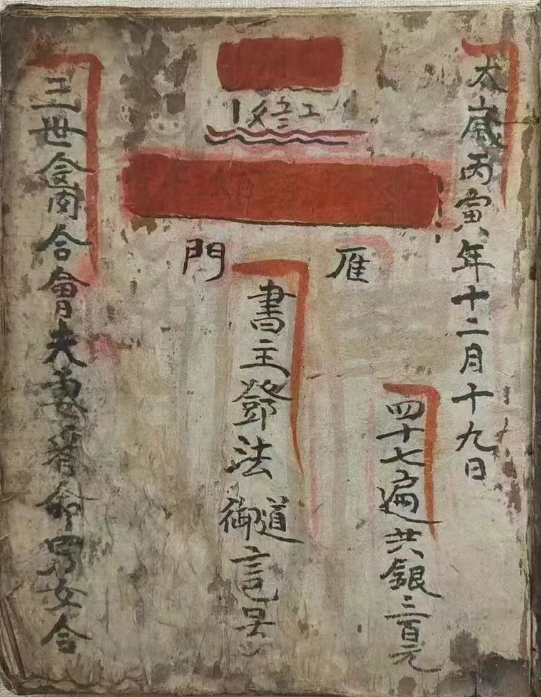 太歲丙寅年十二月十九日
四十七遍共銀三百元
雁門
書主鄧法御道言
三世合同合會夫妻 命 女合